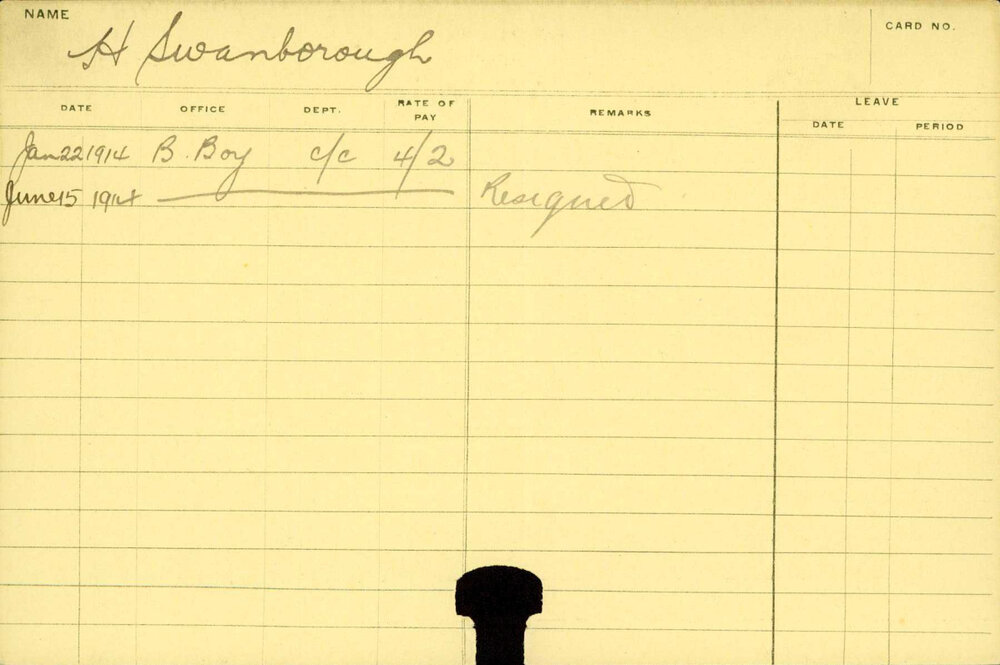 NAME
H Swanborough
CARD NO.
DATE OFFICE DEPT. RATE OF PAY REMARKS LEAVE
DATE PERIOD
Jan 22 1914 B. Boy c/c 4/2
June 15 1914 Resigned